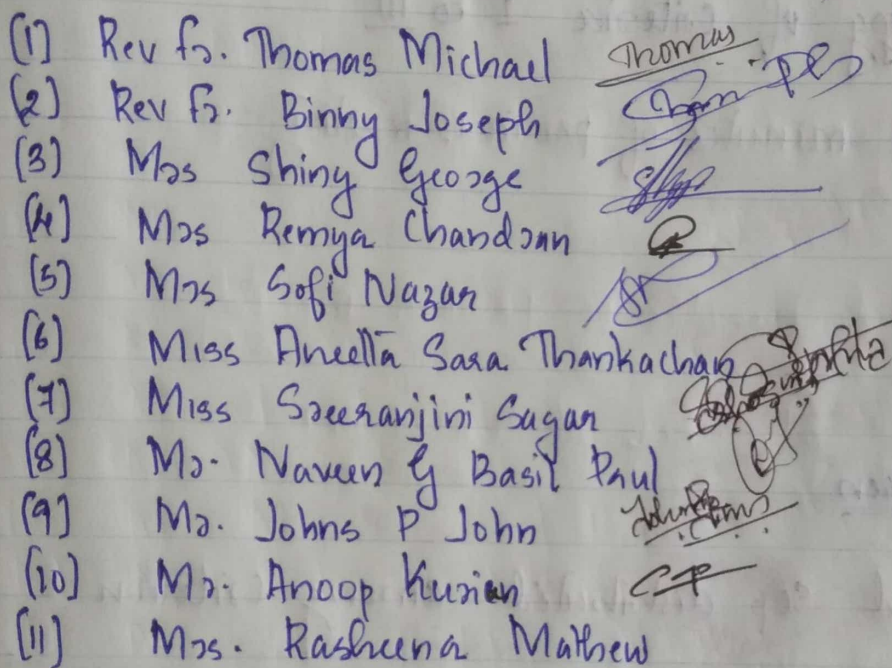 (1) Rev Fr. Thomas Michael Thomas
(2) Rev Fr. Binny Joseph
(3) Mrs Shiny George
(4) Mrs Remya Chandran
(5) Mrs Sofi Nazar
(6) Miss Aneetta Sara Thankachan
(7) Miss Sreeranjini Sagar
(8) Mr. Naveen G Basil Paul
(9) Mr. Johns P John
(10) Mr. Anoop Kurian
(11) Mrs. Rasheena Mathew